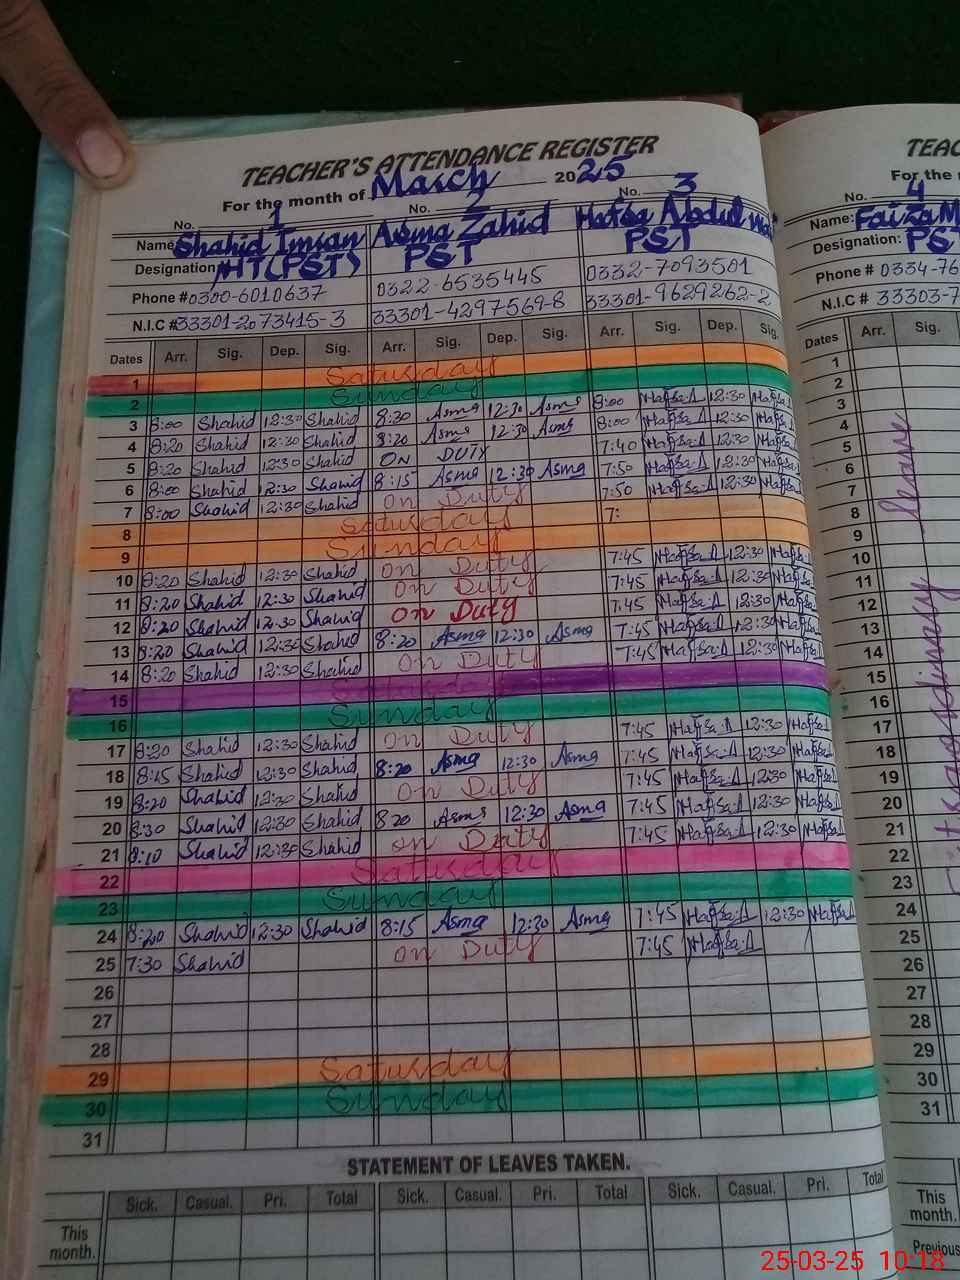 TEACHER'S ATTENDANCE REGISTER
For the month of March 2025
No. 1 No. 2 No. 3
Name: Shahid Imran Asma Zahid Hafsa Abdul
Designation: HT(PST) PST PST
Phone # 0300-6010637 0322-6535445 0332-7093501
N.I.C # 33301-2073415-3 33301-4297569-8 33301-9629262-2
Dates Arr. Sig. Dep. Sig. Arr. Sig. Dep. Sig. Arr. Sig. Dep. Sig.
1 Saturday
2 Sunday
3 8:00 Shahid 12:30 Shahid 8:30 Asma 12:30 Asma 8:00 Hafsa.A 12:30 Hafsa.A
4 8:20 Shahid 12:30 Shahid 8:20 Asma 12:30 Asma 8:00 Hafsa.A 12:30 Hafsa.A
5 8:20 Shahid 12:30 Shahid ON DUTY 7:40 Hafsa.A 12:30 Hafsa.A
6 8:00 Shahid 12:30 Shahid 8:15 Asma 12:30 Asma 7:50 Hafsa.A 12:30 Hafsa.A
7 8:00 Shahid 12:30 Shahid On Duty 7:50 Hafsa.A 12:30 Hafsa.A
8 Saturday 7:
9 Sunday
10 8:20 Shahid 12:30 Shahid On Duty 7:45 Hafsa.A 12:30 Hafsa.A
11 8:20 Shahid 12:30 Shahid On Duty 7:45 Hafsa.A 12:30 Hafsa.A
12 8:20 Shahid 12:30 Shahid On Duty 7:45 Hafsa.A 12:30 Hafsa.A
13 8:20 Shahid 12:30 Shahid 8:20 Asma 12:30 Asma 7:45 Hafsa.A 12:30 Hafsa.A
14 8:20 Shahid 12:30 Shahid On Duty 7:45 Hafsa.A 12:30 Hafsa.A
15 Saturday
16 Sunday
17 8:20 Shahid 12:30 Shahid On Duty 7:45 Hafsa.A 12:30 Hafsa.A
18 8:15 Shahid 12:30 Shahid 8:20 Asma 12:30 Asma 7:45 Hafsa.A 12:30 Hafsa.A
19 8:20 Shahid 12:30 Shahid On Duty 7:45 Hafsa.A 12:30 Hafsa.A
20 8:30 Shahid 12:30 Shahid 8 20 Asma 12:30 Asma 7:45 Hafsa.A 12:30 Hafsa.A
21 8:10 Shahid 12:30 Shahid On Duty 7:45 Hafsa.A 12:30 Hafsa.A
22 Saturday
23 Sunday
24 8:20 Shahid 12:30 Shahid 8:15 Asma 12:30 Asma 7:45 Hafsa.A 12:30 Hafsa.A
25 7:30 Shahid On Duty 7:45 Hafsa.A
26
27
28
29 Saturday
30 Sunday
31
STATEMENT OF LEAVES TAKEN.
Sick. Casual. Pri. Total Sick. Casual. Pri. Total Sick. Casual. Pri. Total
This month.
TEAC
For the
No. 4
Name: Faiza M
Designation: PS
Phone # 0334-76
N.I.C # 33303-7
Dates Arr.
1
2
3
4
5
6
7
8
9
10
11
12
13
14
15
16
17
18
19
20
21
22
23
24
25
26
27
28
29
30
31
leave
This month.
Previous
25-03-25 10:18